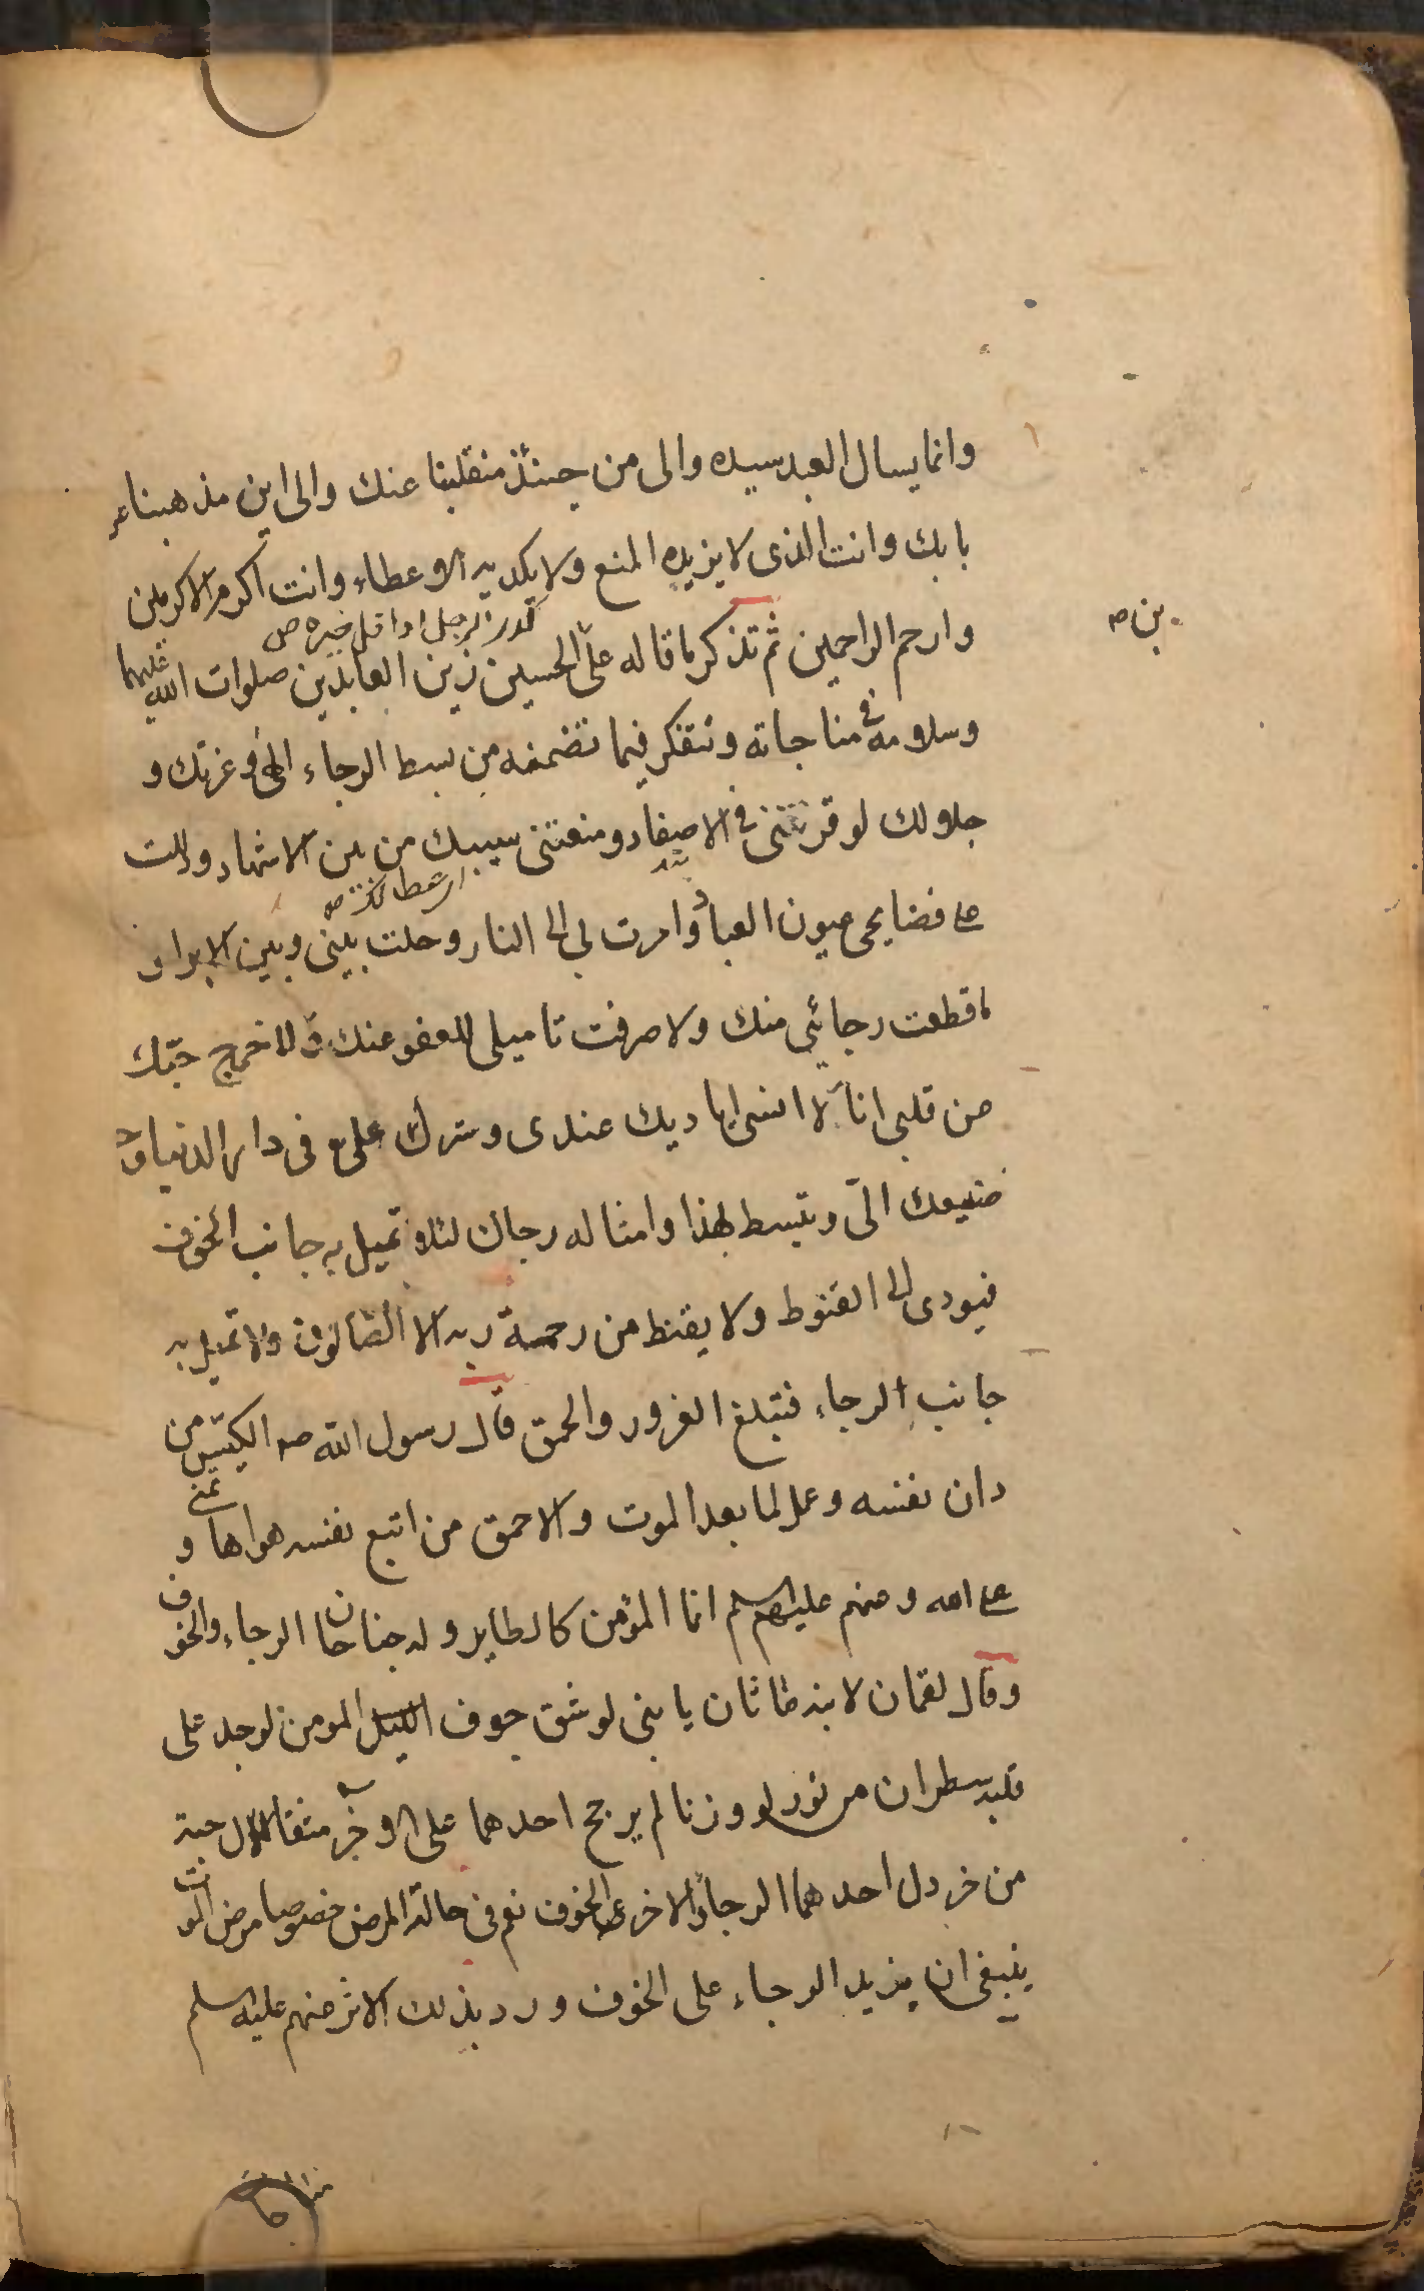 وانما يسال العبد سيده والى من حينئذ منقلبنا عنك والى اين مذهبنا عن
بابك وانت الذى لا يزيده المنع ولا يكديه الاعطاء وانت اكرم الاكرمين
كدر الرجل اذا قل خيره ص
وارحم الراحمين ثم تذكر ما قاله علىّ الحسين زين العابدين صلوات الله عليهما
بن ص
وسلامه فى مناجاته وتتفكر فيما تضمنه من بسط الرجاء الهى وعزتك و
جلالك لو قرنتنى فى الاصفاد ومنعتنى سيبك من بين الاشهاد ودللت
على فضايحى عيون العباد وامرت بى الى النار وحلت بينى وبين الابرار
ما قطعت رجائي منك ولا صرفت تاميلى للعفو عنك ولا خرج حبّك
من قلبى انا لا انسى اياديك عندى وسترك على فى دار الدنيا و
صنيعك الىّ وتبسط بهذا وامثاله رجاك لئلا تميل به جانب الخوف
فيودى الى القنوط ولا يقنط من رحمة ربه الا الضالون ولا تميل به
جانب الرجاء فتبلغ الغرور والحمق قال رسول الله ص الكيّس من
دان نفسه وعمل لما بعد الموت والاحمق من اتبع نفسه هواها و تمنى
على الله وعنهم عليهم السلم انما المؤمن كالطاير وله جناحان الرجاء والخوف
وقال لقمان لابنه ماثان يا بنى لو شق جوف المومن لوجد على
قلبه سطران من نور لو وزنا لم يرجح احدهما على الاخر مثقال حبة
من خردل احدهما الرجاء والاخر الخوف نعم فى حالة المرض خصوصا مرض الموت
ينبغى ان يزيد الرجاء على الخوف ورد بذلك الاثر عنهم عليهم السلم